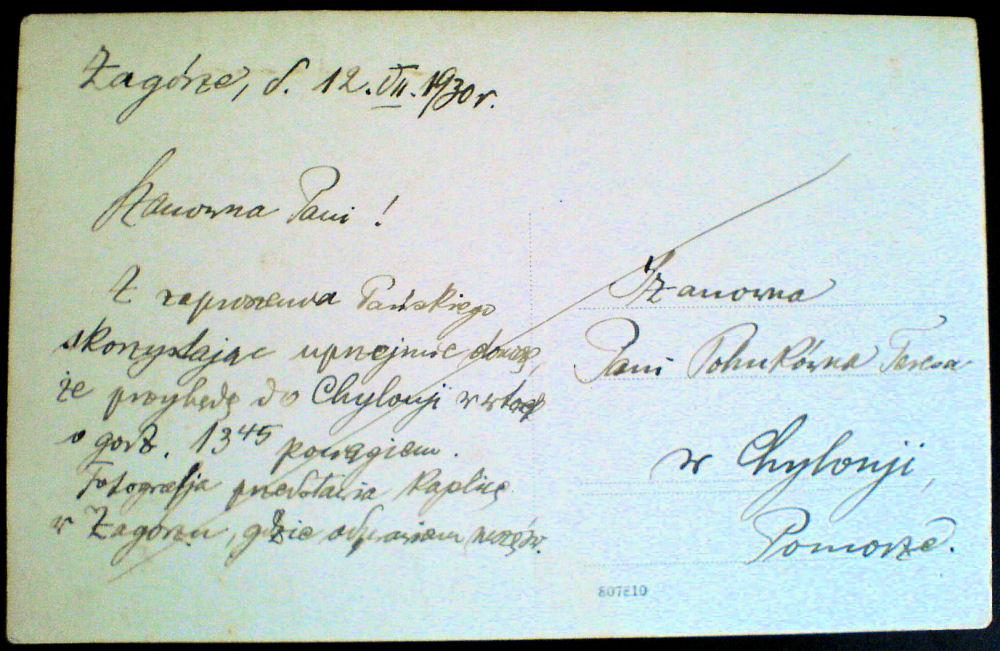 Zagórze, d. 12.VII.1930 r.
Szanowna Pani!
Z zaproszenia Pańskiego
skorzystając uprzejmie donoszę,
że przybędę do Chylonji
o godz. 13⁴⁵ pociągiem.
Fotografja przedstawia kaplicę
w Zagórzu, gdzie
Szanowna
Pani Teresa
w Chylonji,
Pomorze.
807810